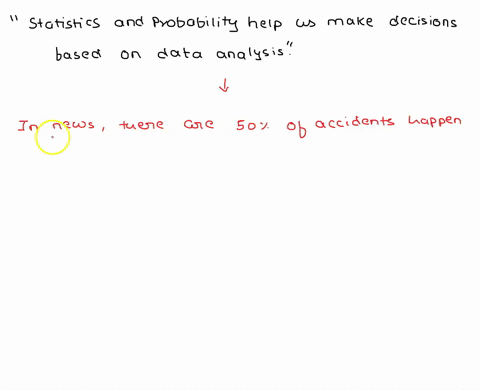 "Statistics and Probability help us make decisions
based on data analysis".
↓
In news, there are 50% of accidents happen